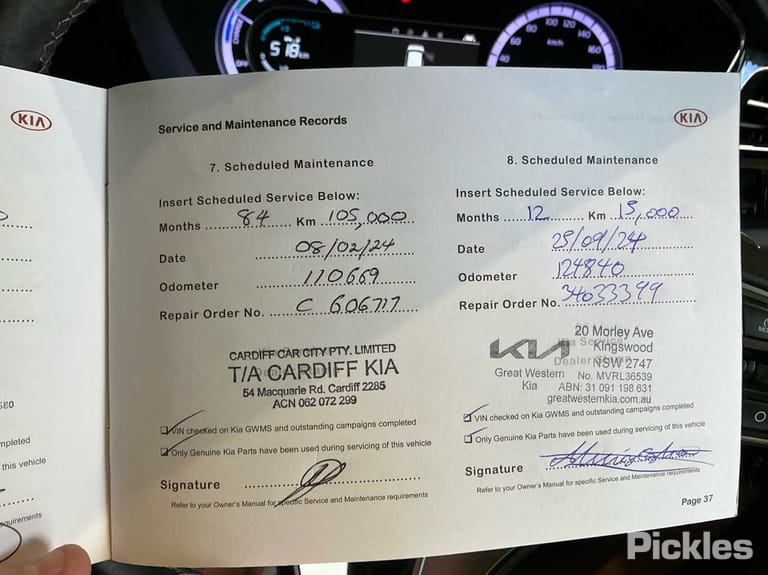 518 km
80 100 120 140
60
km/h
160
40
180
KIA
Service and Maintenance Records
KIA
7. Scheduled Maintenance
8. Scheduled Maintenance
Insert Scheduled Service Below:
Months ...... 84 ...... Km ..105,000..
Date 08/02/24
Odometer 110669
Repair Order No. C 606717
CARDIFF CAR CITY PTY. LIMITED
T/A CARDIFF KIA
54 Macquarie Rd. Cardiff 2285
ACN 062 072 299
VIN checked on Kia GWMS and outstanding campaigns completed
Only Genuine Kia Parts have been used during servicing of this vehicle
Signature
Refer to your Owner's Manual for specific Service and Maintenance requirements
Insert Scheduled Service Below:
Months ..... 12 ..... Km ..15,000..
Date 25/09/24
Odometer 124840
Repair Order No. 34033399
KIA
Great Western
Kia
20 Morley Ave
Kingswood
NSW 2747
No. MVRL36539
ABN: 31 091 198 631
greatwesternkia.com.au
VIN checked on Kia GWMS and outstanding campaigns completed
Only Genuine Kia Parts have been used during servicing of this vehicle
Signature
Refer to your Owner's Manual for specific Service and Maintenance requirements
Page 37
580
mpleted
this vehicle
equirements
Pickles